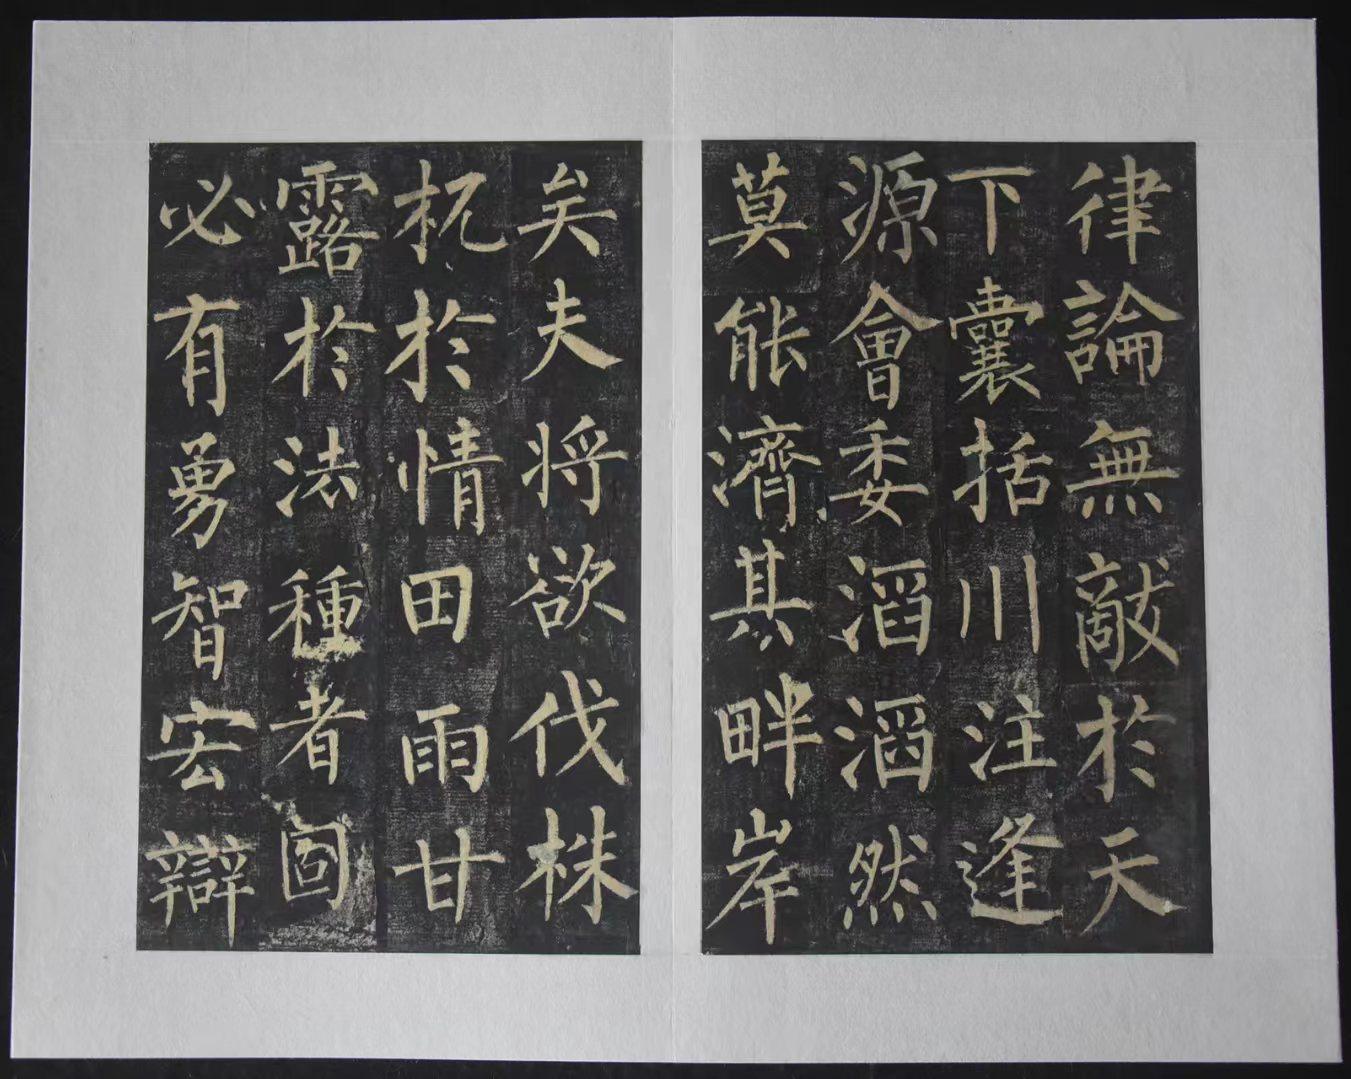 律論無敵於天
下囊括川注逢
源會委滔滔然
莫能濟其畔岸
矣夫将欲伐株
杌於情田雨甘
露於法種者固
必有勇智宏辯